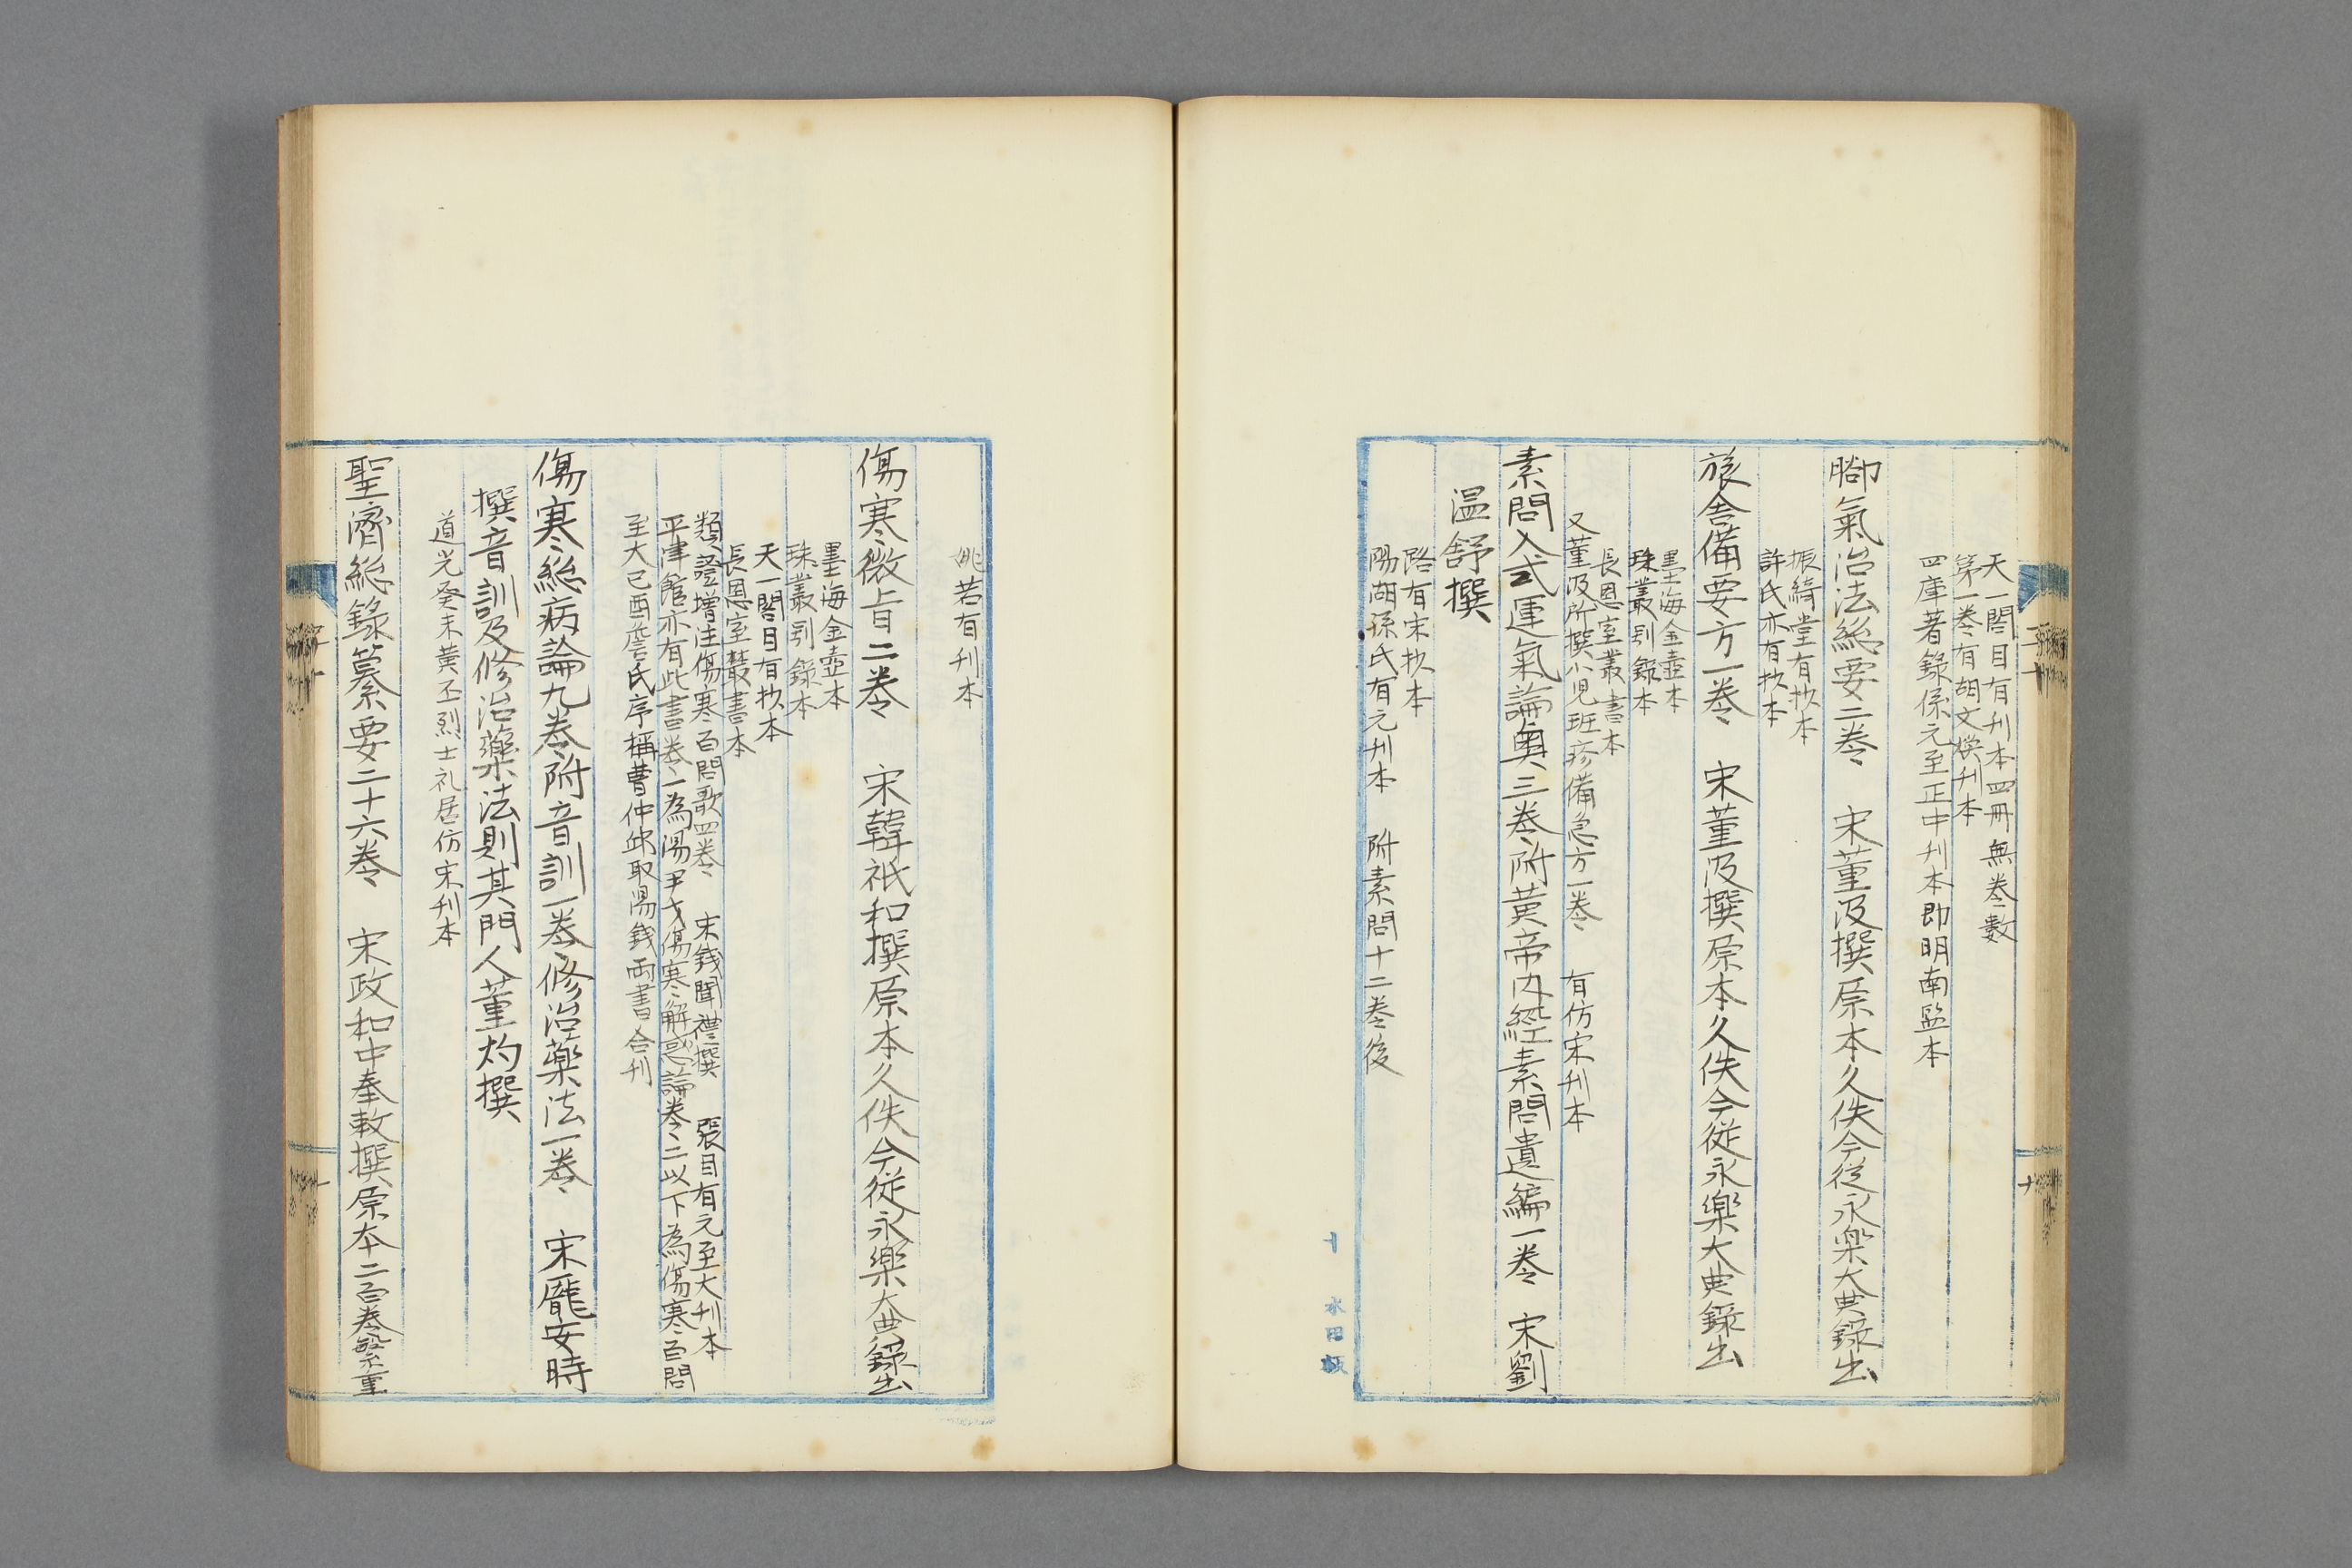 天一閣目有刊本四冊無卷數
第一卷有胡文煥刊本
四庫著錄係元至正中刊本即明南監本
腳氣治法總要二卷　宋董汲撰原本久佚今從永樂大典錄出
振綺堂有抄本
許氏亦有抄本
旅舍備要方一卷　宋董汲撰原本久佚今從永樂大典錄出
墨海金壺本
珠叢別錄本
長恩室叢書本
又董汲所撰小兒班疹備急方一卷　有仿宋刊本
素問入式運氣論奧三卷附黃帝內經素問遺編一卷　宋劉
溫舒撰
路有宋抄本
陽湖孫氏有元刊本　附素問十二卷後
十　水田板
姚若有刊本
傷寒微旨二卷　宋韓祇和撰原本久佚今從永樂大典錄出
墨海金壺本
珠叢別錄本
天一閣目有抄本
長恩室叢書本
類證增注傷寒百問歌四卷　宋錢聞禮撰　張目有元至大刊本
平津館亦有此書卷一為湯尹才傷寒解惑論卷二以下為傷寒百問
至大己酉詹氏序稱曹仲取湯錢兩書合刊
傷寒總病論九卷附音訓一卷修治藥法一卷　宋龐安時
撰音訓及修治藥法則其門人董灼撰
道光癸未黃丕烈士礼居仿宋刊本
聖濟總錄纂要二十六卷　宋政和中奉敕撰原本二百卷繁重